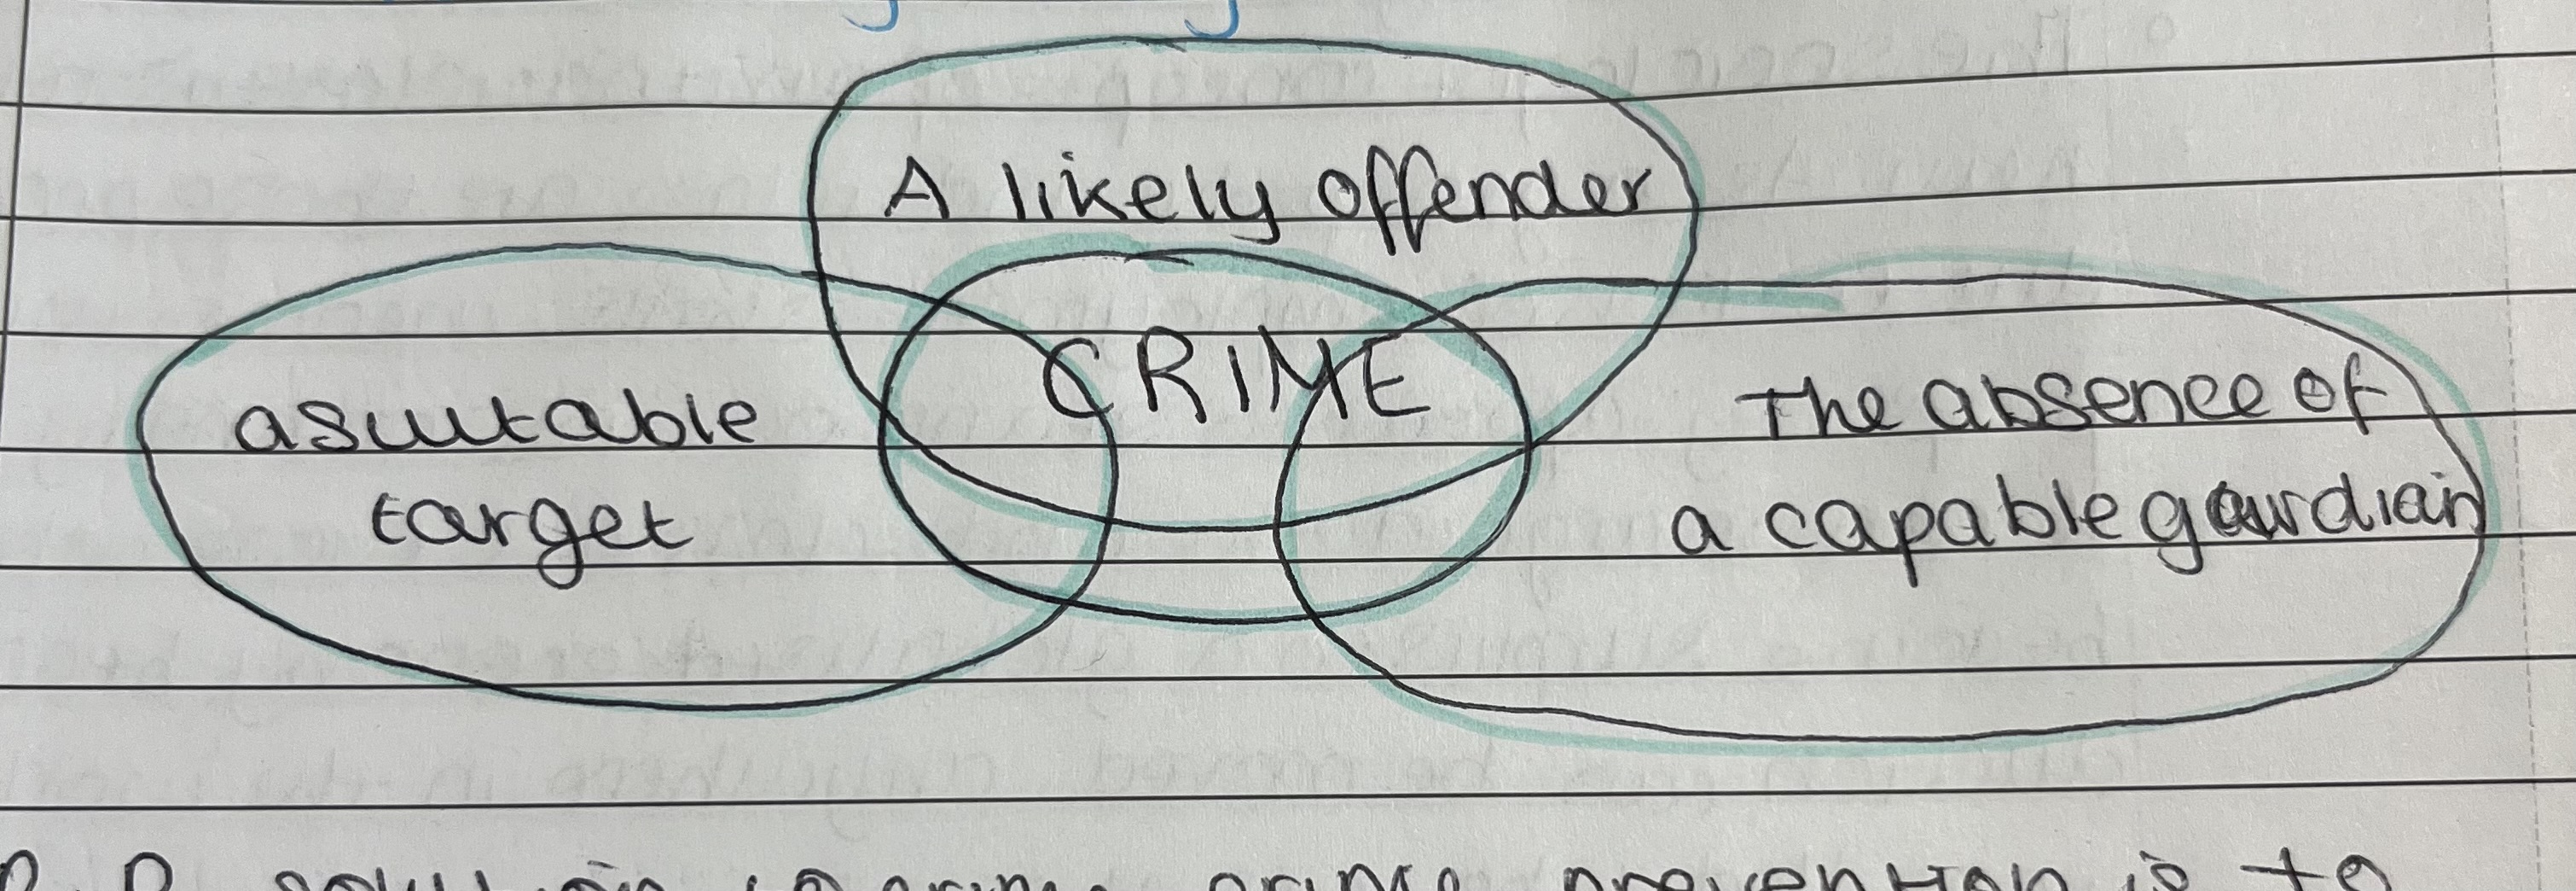 A likely offender
CRIME
a suitable
target
The absence of
a capable gaurdian
solution crime prevention is to